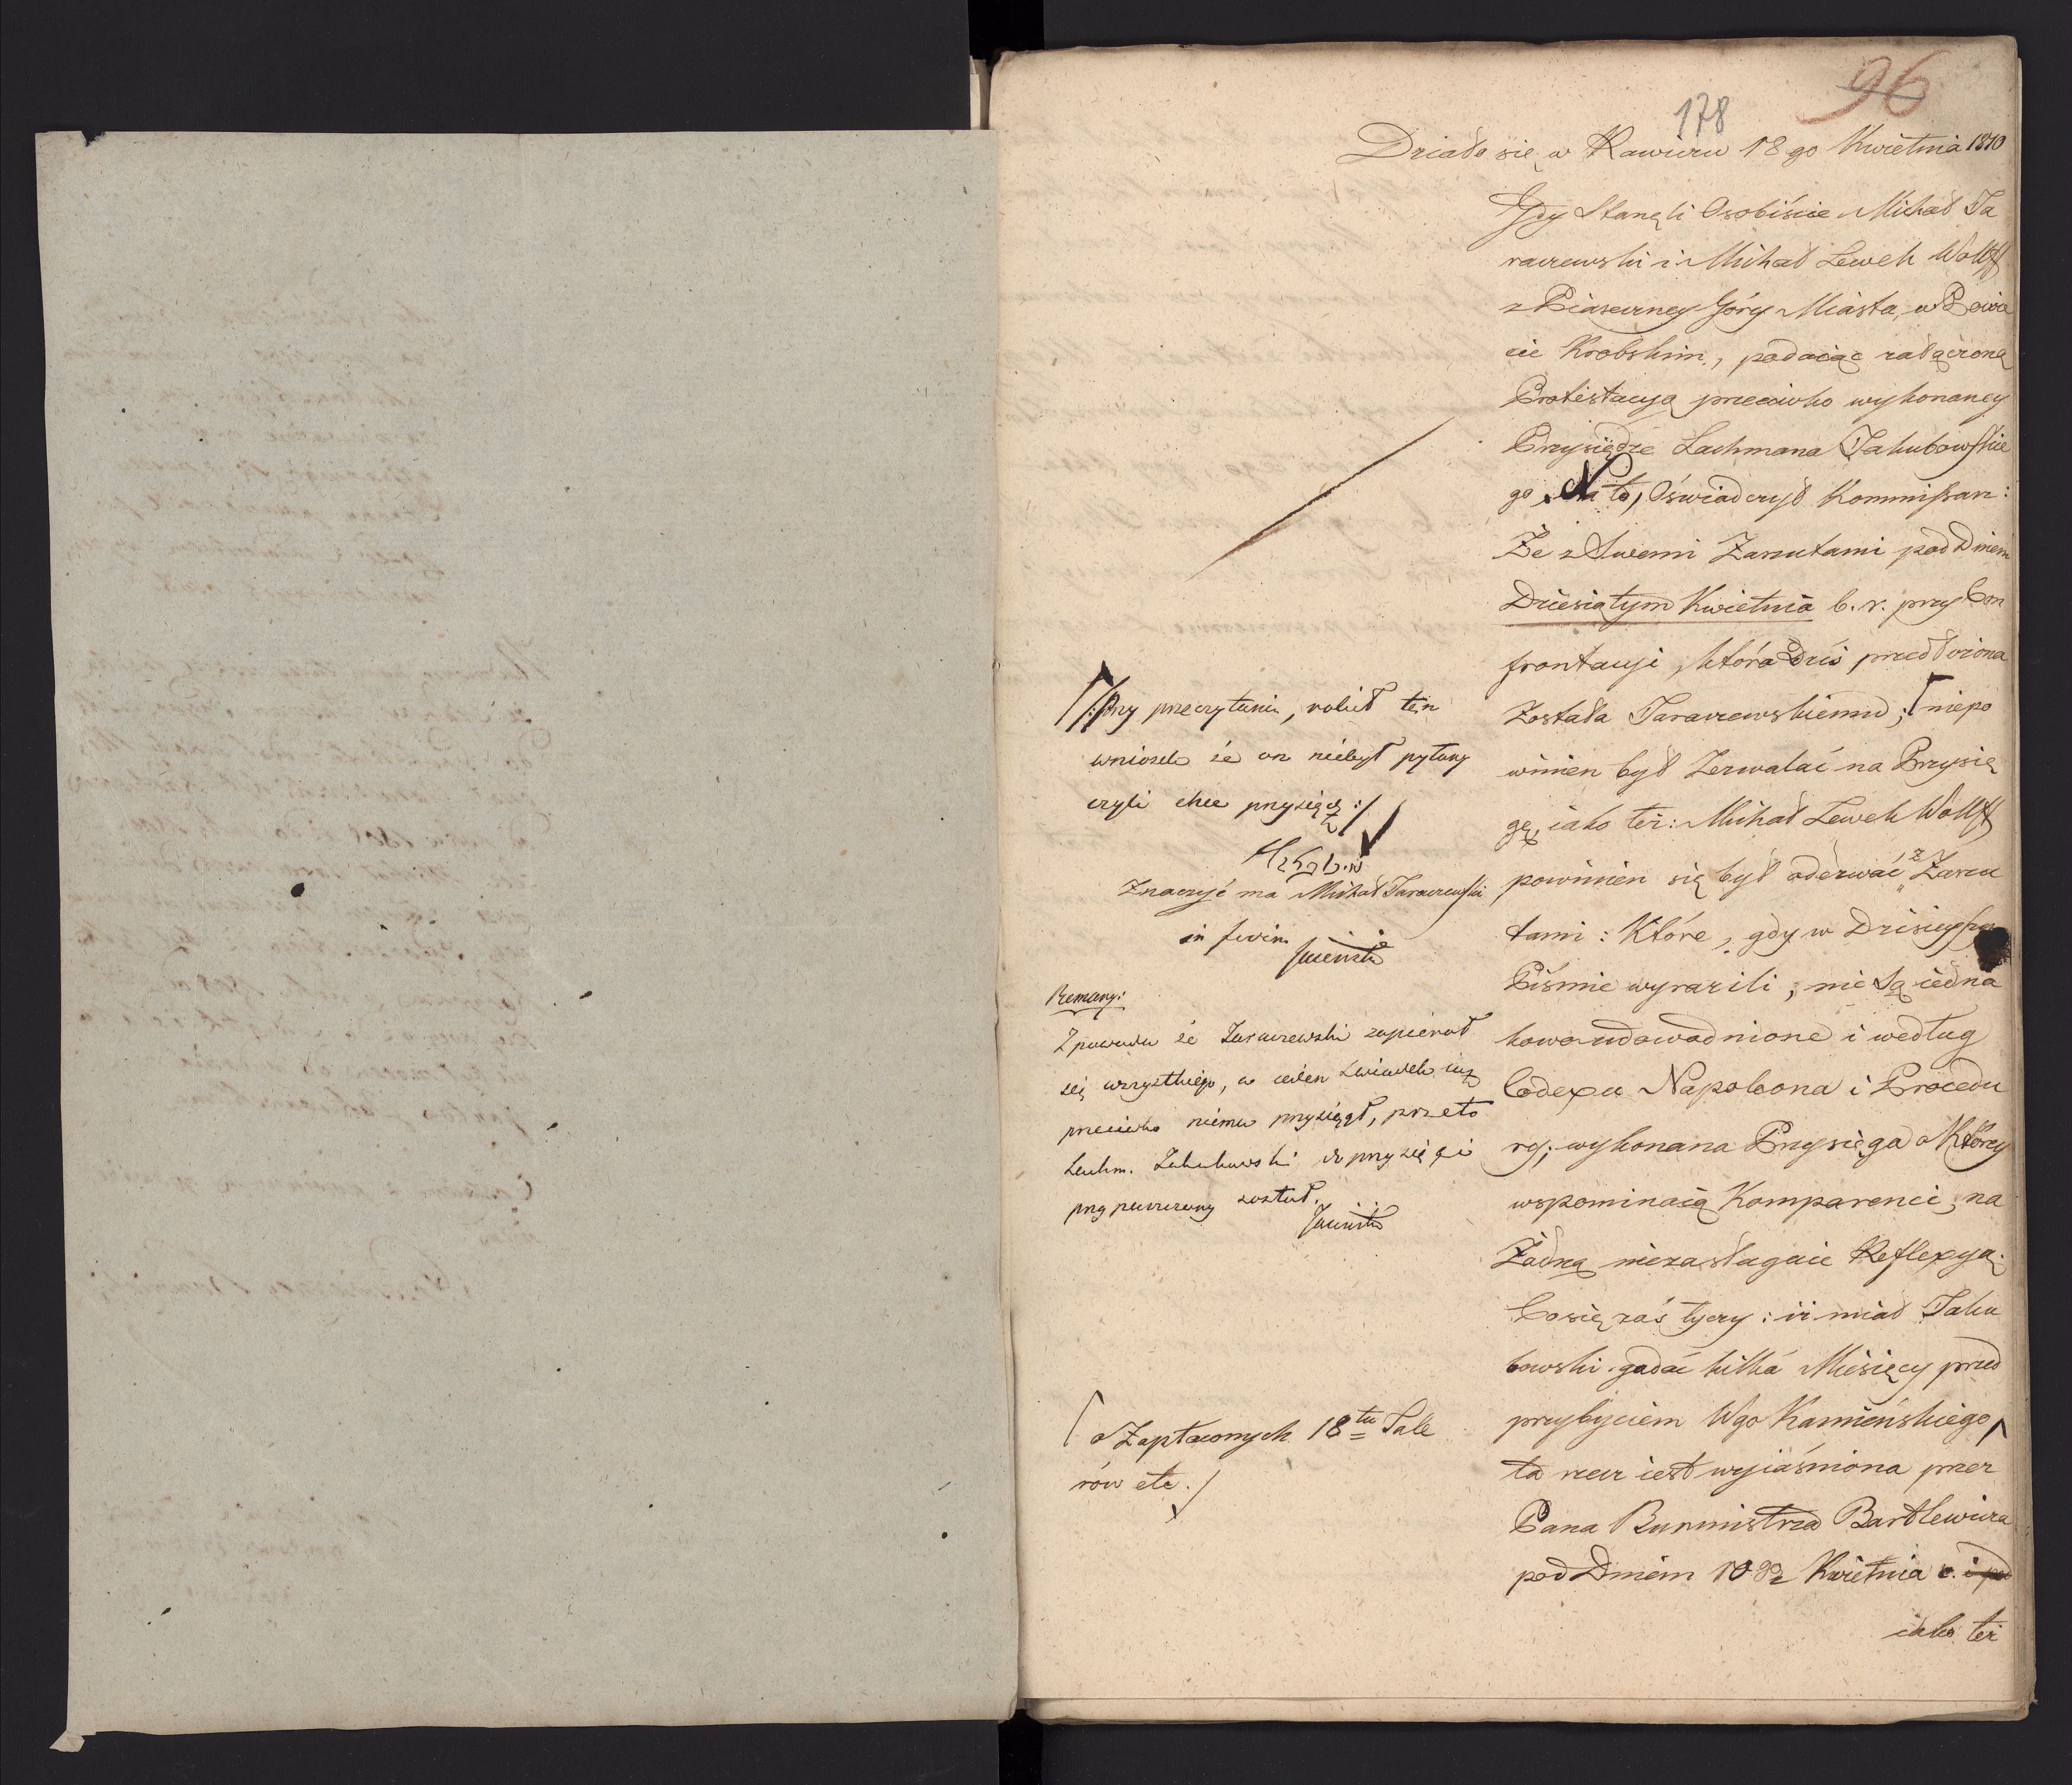 96
178
Działo się w Rawiczu 18go Kwietnia 1810
Gdy Stanęli Osobiście Michał Ta
raczewski i Michał Lewek Wolff
z Piaseczney Góry Miasta, w Powie
cie Krobskim, podaiąc załączoną
Protestacyą przeciwko wykonaney
Przysiędze Lachmana Jakubowskie
go, Na to, Oświadczył Kommissarz:
Że z Swemi Zarzutami pod Dniem
Dziesiątym Kwietnia b. r. przy Con
frontacyi, która Dziś przedłożona
Została Taraczewskiemu, niepo
winien był Zezwalać na Przysię
gę, iako też: Michał Lewek Wolff
powinien się był oderwać z Zarzu
tami: Które, gdy w Dzisieyszy
Piśmie wyrazili, nie są iedna
kowo udowodnione i według
Codexu Napoleona i Procedu
ry; wykonana Przysięga o Którey
wspominaią Komparenci, na
Żadną niezasługuie Reflexyą.
Co się zaś tyczy: iż miał Jaku
bowski gadać kilka Miesięcy przed
przybyciem Wgo Kamieńskiego
ta rzecz iest wyiaśniona przez
Pana Burmistrza Bartlewicza
pod Dniem 10 Kwietnia c. i pod
iako też
/:Przy przeczytaniu, robił ten
wniosek że on niebył pytany
czyli chce przysiądz:/
Znaczyć ma Michał Taraczewski
in fidem
Remarq:
Z powodu że Taraczewski zapierał
się wszystkiego, a ieden Świadek iuż
przeciwko niemu przysiągł, przeto
Lachm. Jakubowski do przysięgi
przypuszczony został.
o Zapłaconych 18tu Tale
rów etc./